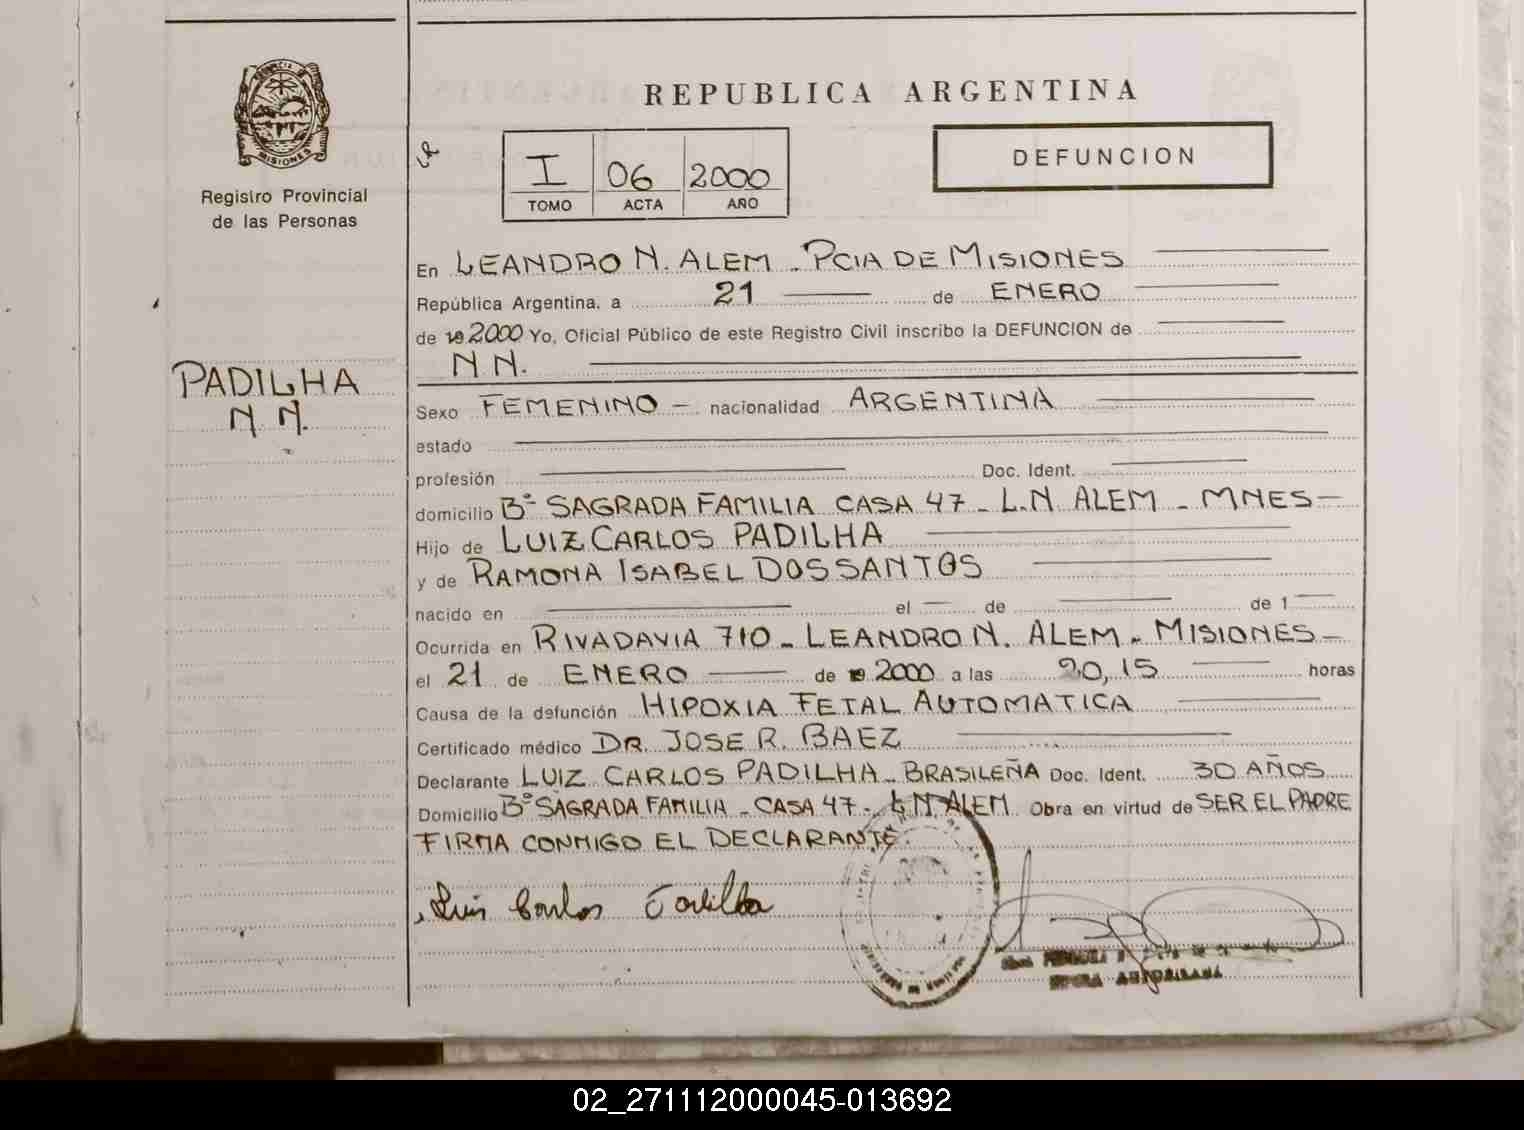 PROVINCIA D
MISIONES
Registro Provincial
de las Personas
REPUBLICA ARGENTINA
DEFUNCION
I 06 2000
TOMO ACTA AÑO
En LEANDRO N. ALEM - PCIA DE MISIONES
República Argentina, a 21 de ENERO
de 19 2000 Yo, Oficial Público de este Registro Civil inscribo la DEFUNCION de
N N.
PADILHA
N N.
Sexo FEMENINO - nacionalidad ARGENTINA
estado
profesión Doc. Ident.
domicilio Bº SAGRADA FAMILIA CASA 47 - L.N. ALEM - MNES -
Hijo de LUIZ CARLOS PADILHA
y de RAMONA ISABEL DOS SANTOS
nacido en el de de 1
Ocurrida en RIVADAVIA 710 - LEANDRO N. ALEM - MISIONES -
el 21 de ENERO de 19 2000 a las 20,15 horas
Causa de la defunción HIPOXIA FETAL AUTOMATICA
Certificado médico DR. JOSE R. BAEZ
Declarante LUIZ CARLOS PADILHA - BRASILEÑA Doc. Ident. 30 AÑOS
Domicilio Bº SAGRADA FAMILIA - CASA 47 - L.N. ALEM Obra en virtud de SER EL PADRE
FIRMA CONMIGO EL DECLARANTE.
Luis Carlos Padilha
02_271112000045-013692